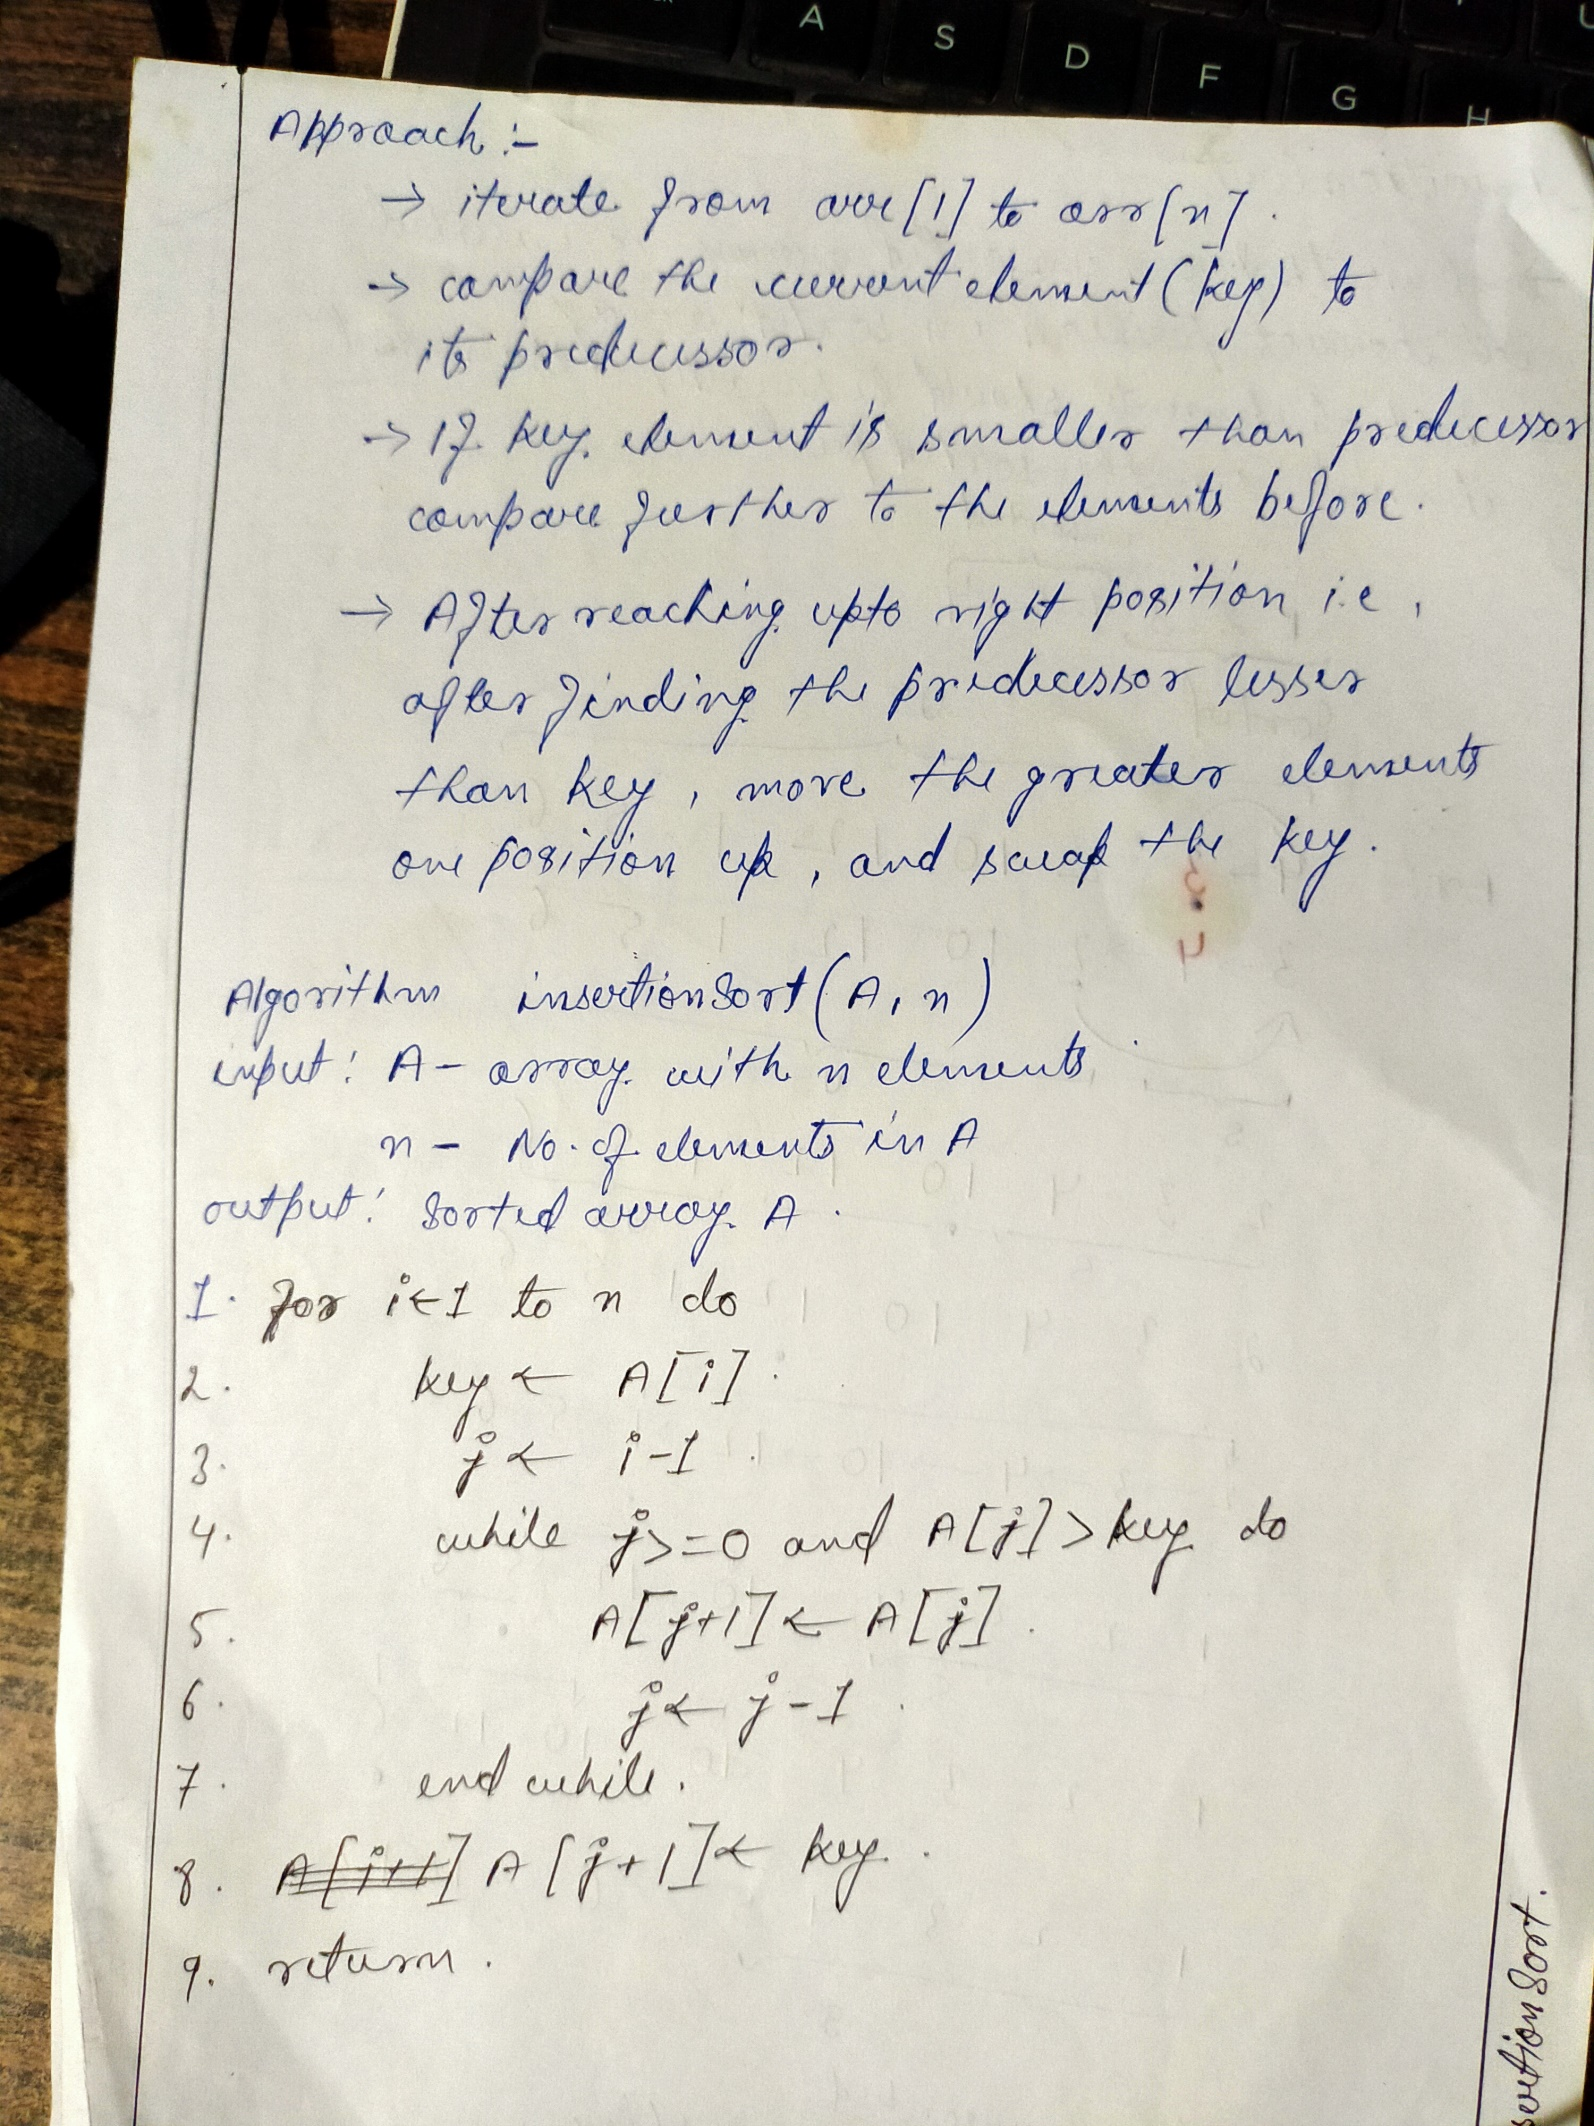 A
S
D
F
G
H
Approach :-
→ iterate from arr[1] to arr[n].
→ compare the current element (key) to
its predecessor.
→ If key element is smaller than predecessor
compare further to the elements before.
→ After reaching upto right position i.e,
after finding the predecessor lesser
than key, move the greater elements
one position up, and swap the key.
Algorithm insertionSort(A, n)
input: A - array with n elements
n - No. of elements in A
output: Sorted array A.
1. for i ← 1 to n do
2. key ← A[i].
3. j ← i-1.
4. while j >= 0 and A[j] > key do
5. A[j+1] ← A[j].
6. j ← j-1.
7. end while.
8. A[j+1] ← key.
9. return.
Sort.